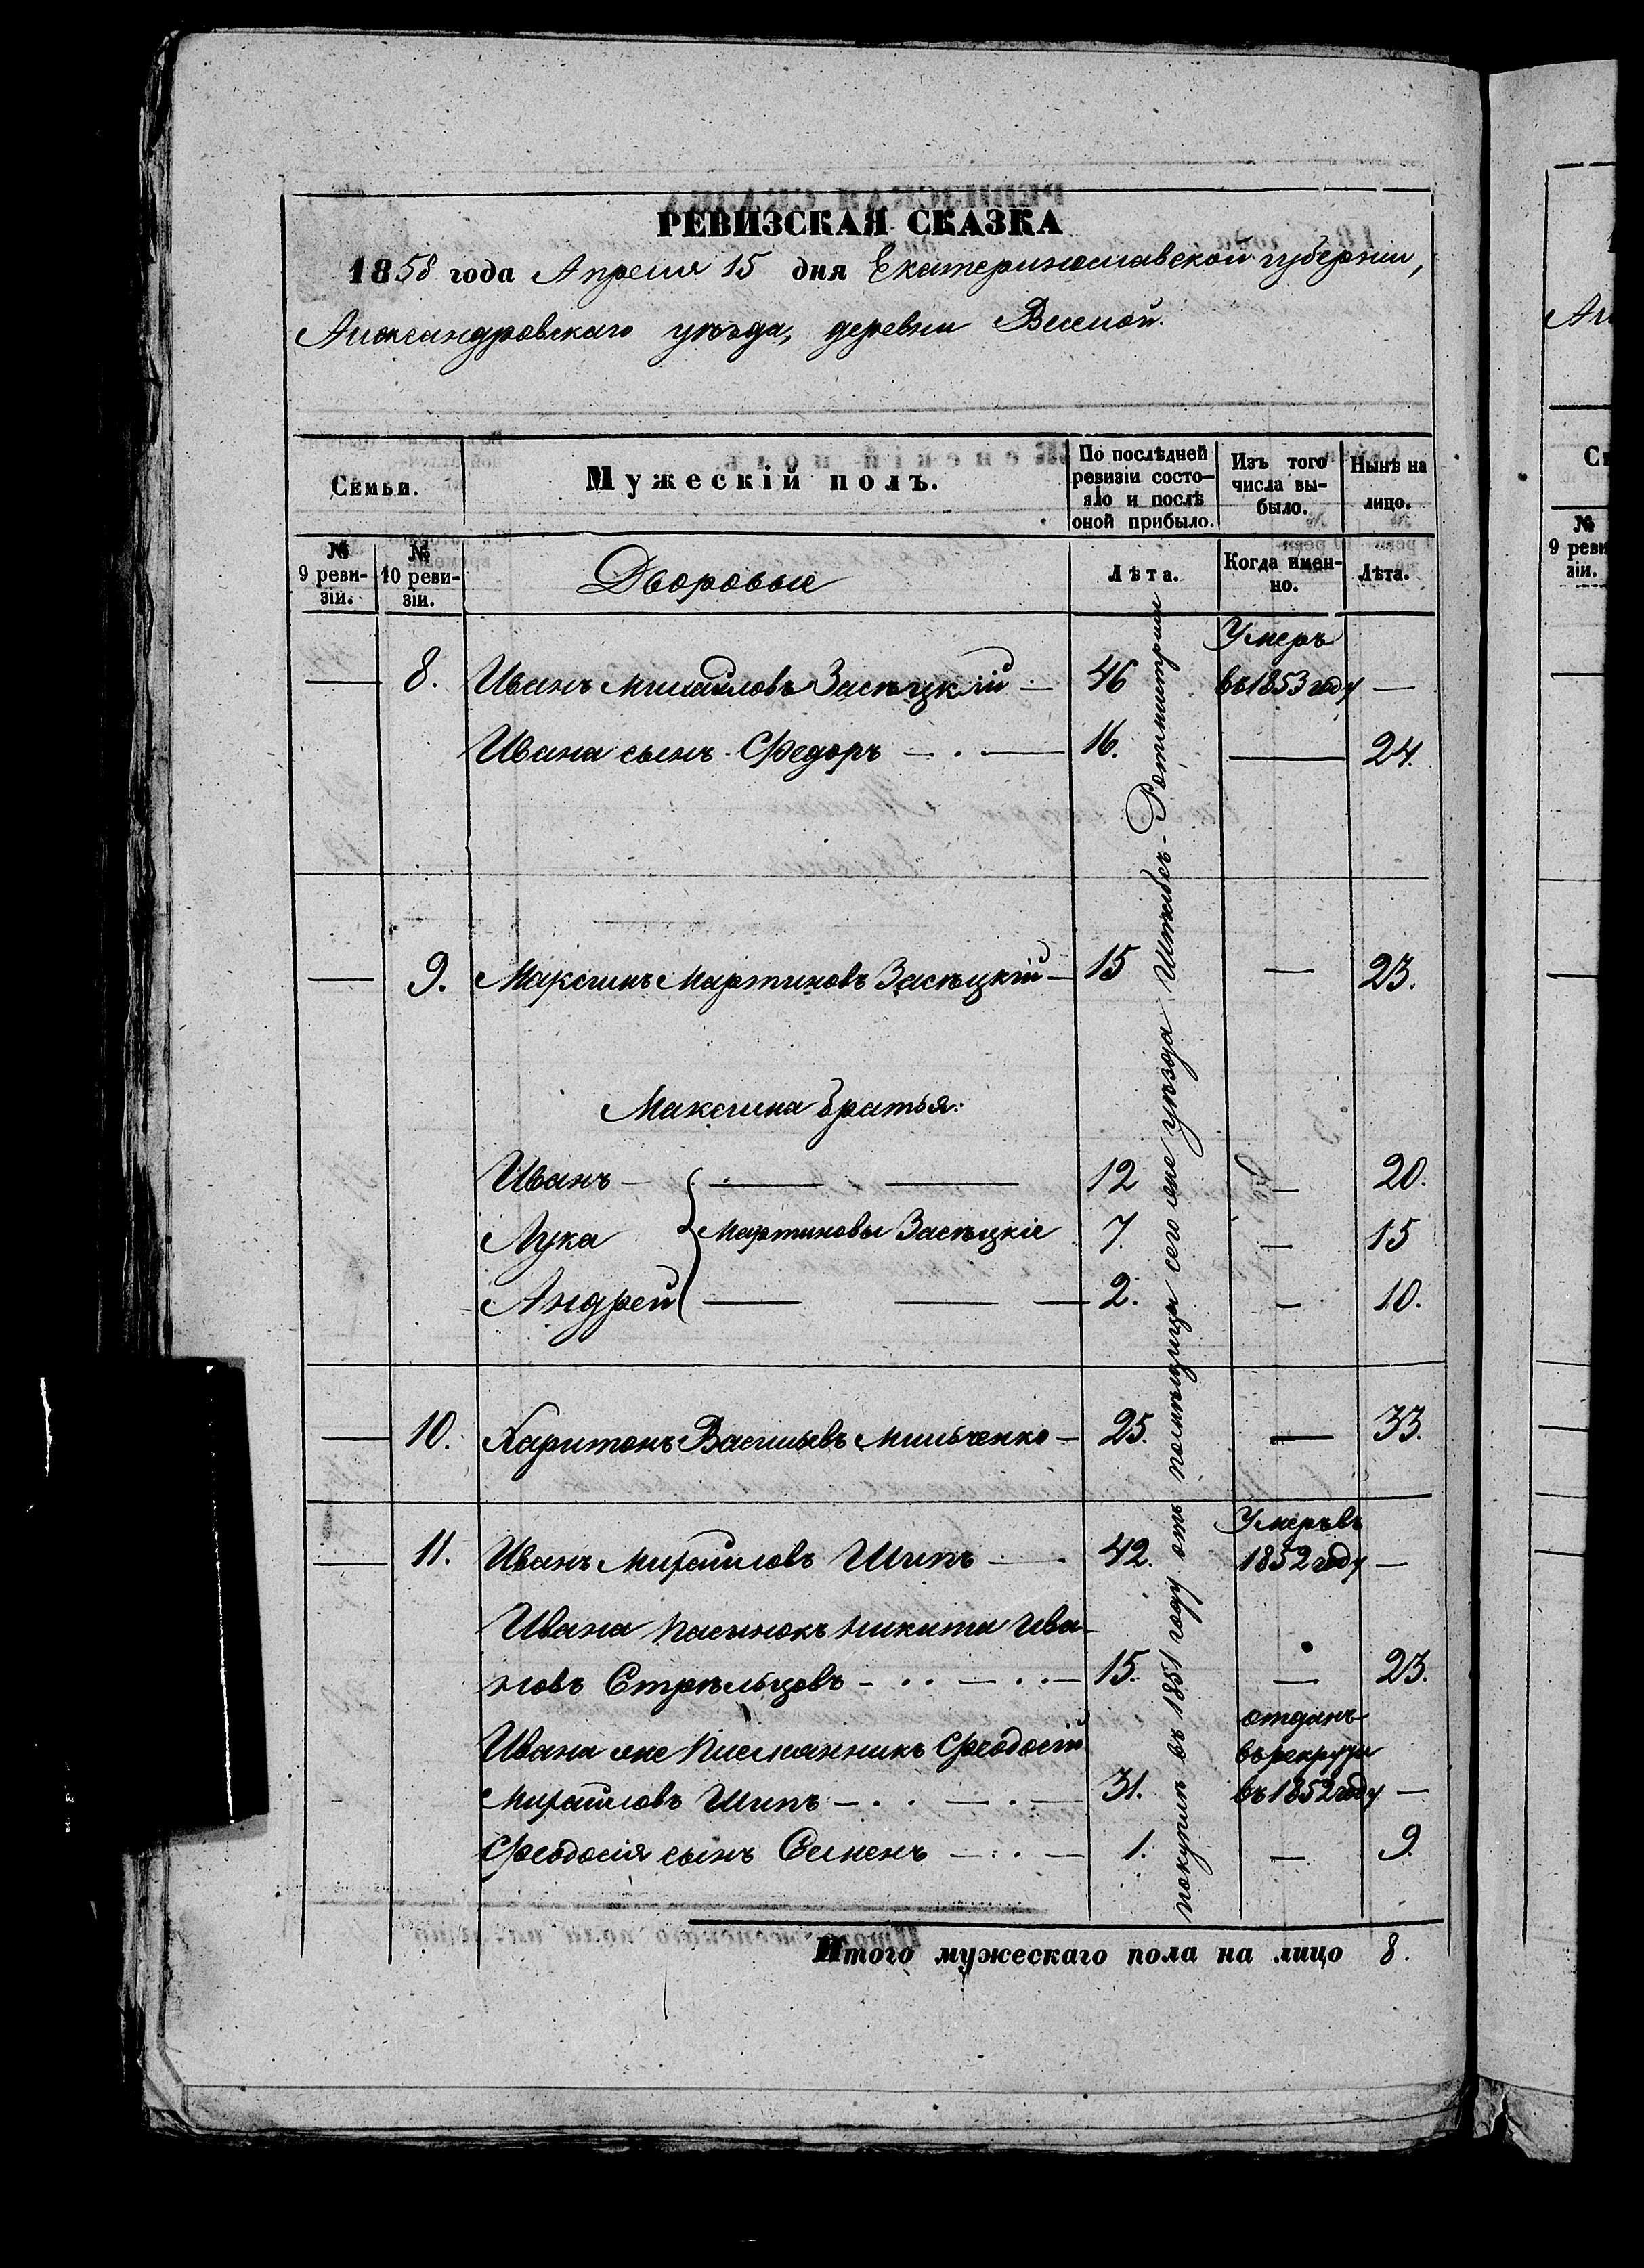 РЕВИЗСКАЯ СКАЗКА
1858 года Апреля 15 дня Екатеринославской губернии,
Александровскаго уѣзда, деревни Веселой.
Семьи.
Мужескій полъ.
По послѣдней
ревизіи состо-
яло и послѣ
оной прибыло.
Изъ того
числа вы-
было.
Нынѣ на
лицо.
№
9 реви-
зіи.
№
10 реви-
зіи.
Дворовые
Лѣта.
Когда имен-
но.
Лѣта.
Умеръ
— 8. Иванъ Михайловъ Засѣцкій — 46 въ 1853 году —
Ивана сынъ Федоръ — . — 16. — 24.
— 9. Максимъ Мартиновъ Засѣцкій — 15 — 23.
Максима братья:
Иванъ — 12 — 20.
Лука Мартиновы Засѣцкіе 7. — 15
Андрей — 2. — 10.
— 10. Харитонъ Васильевъ Мильченко — 25. — 33.
Умеръ въ
— 11. Иванъ Михайловъ Шипъ — 42. 1852 году —
Ивана пасынокъ Никита Ива-
новъ Стрѣльцовъ — . . — . . — 15. — 23.
отданъ
Ивана же племянникъ Феодосій
въ рекруты
Михайловъ Шипъ — . . — . — 31. въ 1852 году —
Феодосія сынъ Семенъ — . . — 1. — 9.
покупилъ въ 1851 году отъ помѣщицы сего же уѣзда Штабсъ-Ротмистрши
Итого мужескаго пола на лицо 8.
№
9 реви
зіи.